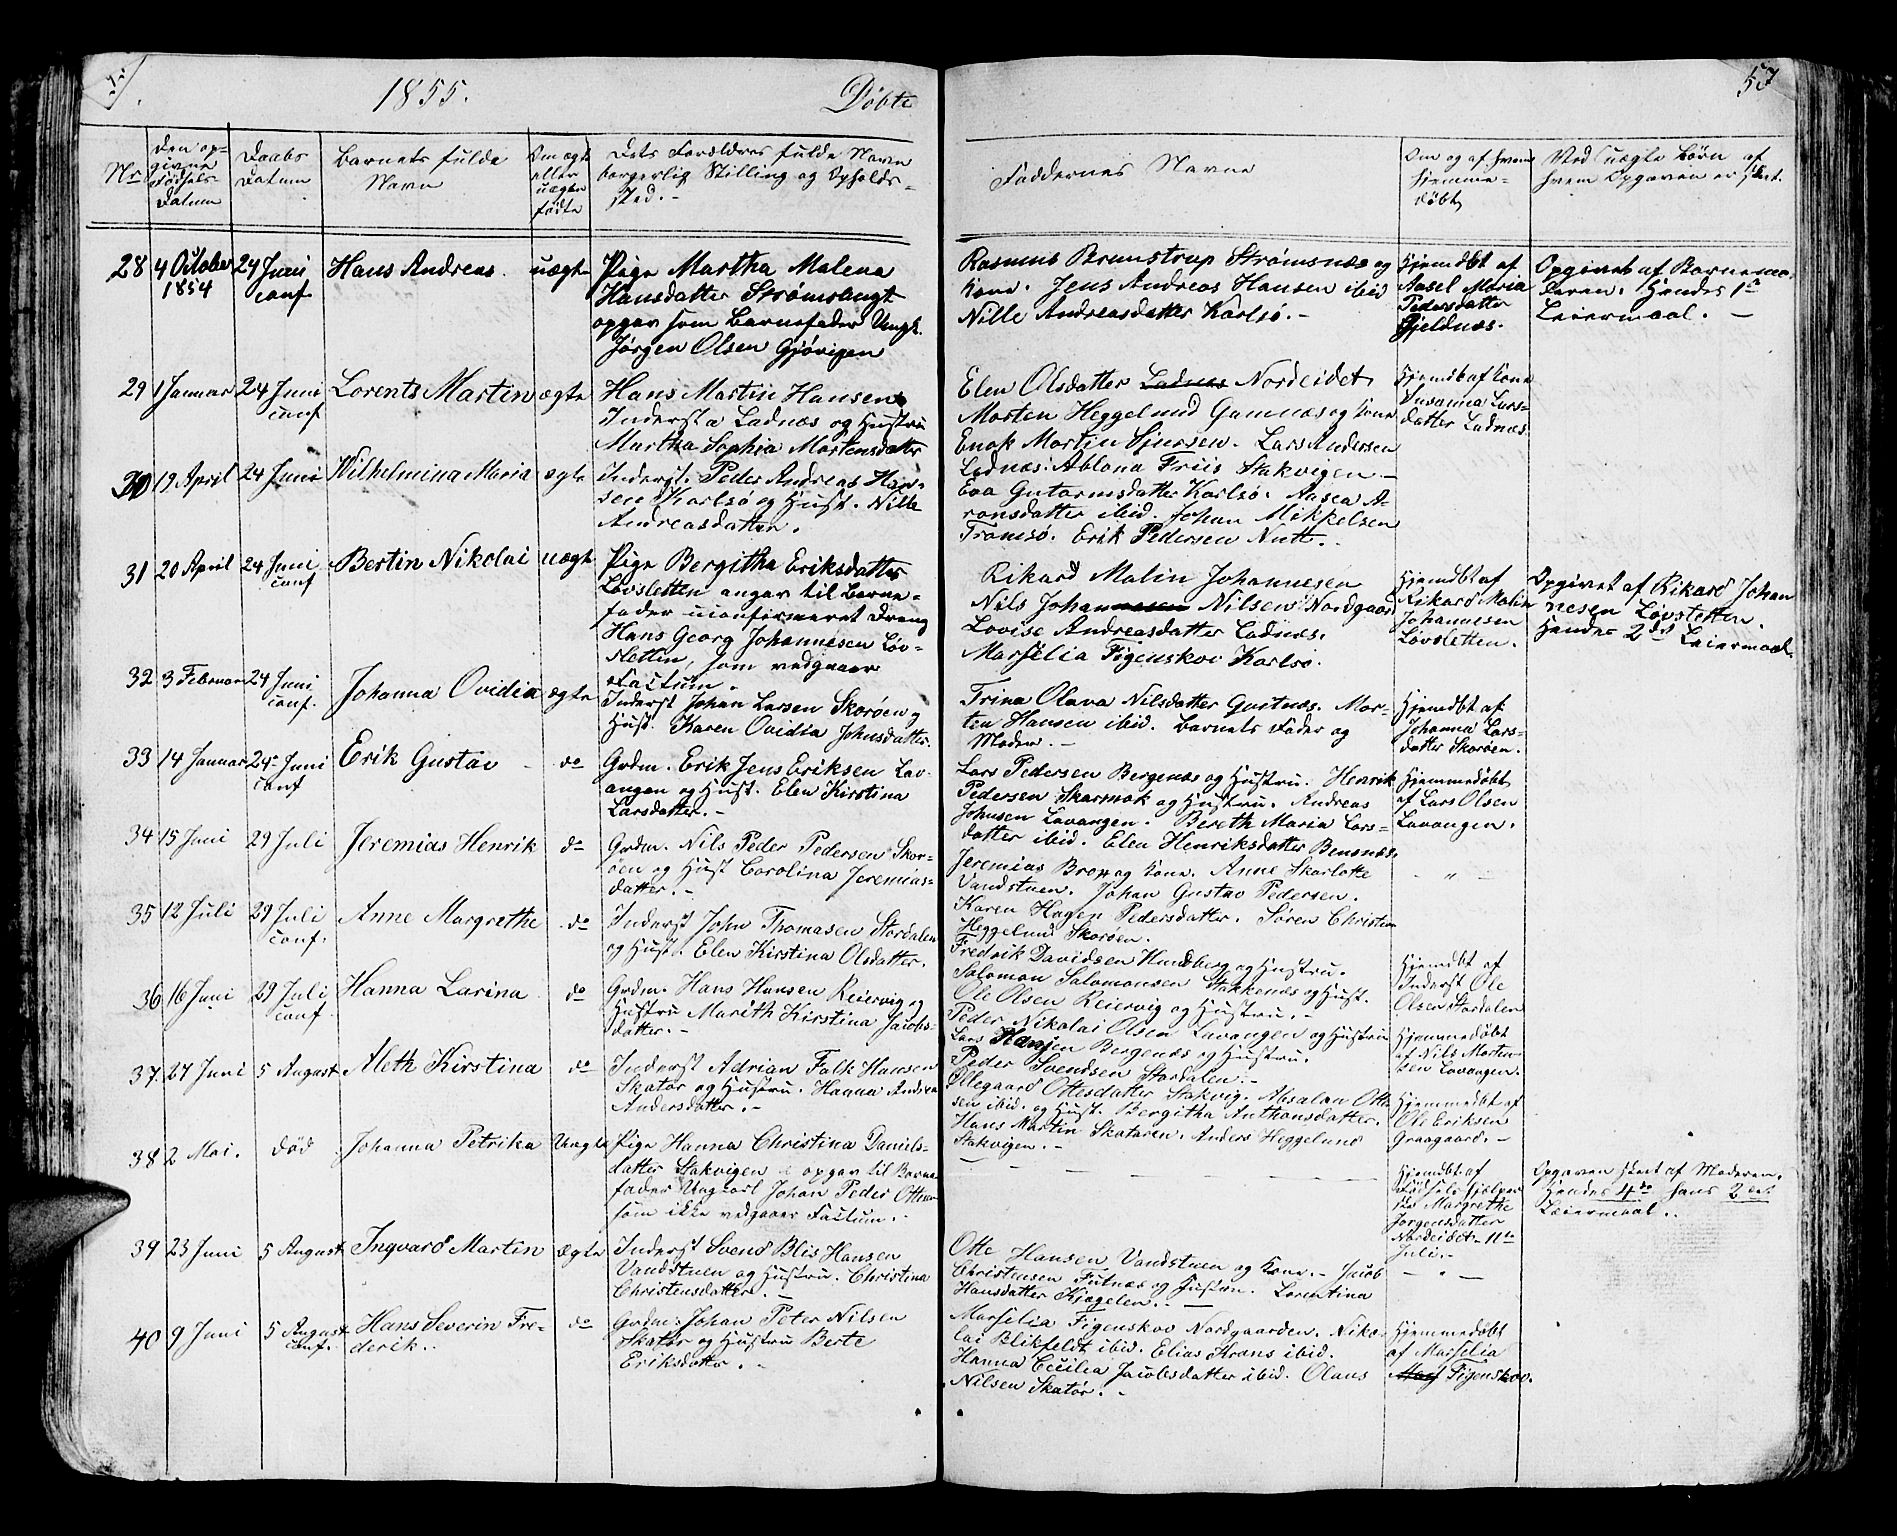 1855.
Døbte
57
Nr
Den op-
givne
Fødsels-
Datum
Daabs
Datum
Barnets fulde
Navn
Om ægte
eller
uægte
fødte
Dets Forældres fulde Navn
borgerlig Stilling og Opholds-
sted.-
Faddernes Navne
Om og af hvem
hjemme-
døbt
Ved uægte Børn af
hvem Opgaven er skeet.
28 4 October 1854
24 Juni conf
Hans Andreas.
uægte
Pige Martha Malena
Hansdatter Strømslugt
opgav som Barnefader Ungk.
Jørgen Olsen Gjövigen
Rasmus Brunstrup Strømsnæs og
Kone. Jens Andreas Hansen ibid
Nille Andreasdatter Karlsö.-
Hjemdbt af
Aasel Maria
Pedersdatter
Gjeldnæs.
Opgivet af Barnemo-
deren. Hendes 1ste
Leiermaal. -
29 1 Januar
24 Juni conf
Lorents Martin
ægte
Hans Martin Hansen
Inderst a Ladnæs og Hustru
Martha Sophia Mortensdatter
Elen Olsdatter Ladnæs Nordeidet
Morten Heggelund Gamnæs og Kone
Enok Martin Sjursen. Lars Andersen
Ladnæs. Ablona Friis Stakvigen.-
Hjemdb af Kone
Susanna Lars-
datter Ladnæs
30 19 April
24 Juni
Wilhelmina Maria
ægte
Inderst. Peder Andreas Han-
sen Karlsö og Hust. Nille
Andreasdatter.
Eva Gutormsdatter Karlsö. Aasea A-
ronsdatter ibid. Johan Mikkelsen
Tromsö. Erik Pedersen Nutt.
31 20 April
24 Juni conf
Bertin Nikolai
uægte
Pige Bergitha Eriksdatter
Lövsletten angav til Barne-
fader uconfirmeret Dreng
Hans Georg Johannesen Löv-
sletten, som vedgaaer
Factum.
Rikard Malin Johannesen
Nils Johannesen Nilsen Nordgaard
Lovise Andreasdatter Ladnæs.
Marselia Figenskov Karlsö.
Hjemdbt af
Rikard Malin
Johannesen
Løvsletten.
Opgivet af Rikard Johan
nesen Løvsletten.
Hendes 2det Leiermaal.
32 3 Februar
24 Juni conf.
Johanna Ovidia
ægte
Inderst Johan Larsen Skoröen og
Hust. Karen Ovidia Johnsdatter.
Trina Olava Nilsdatter Gustnæs. Mor-
ten Hansen ibid. Barnets Fader og
Moder.-
Hjemdbt af
Johanna Lars-
datter Skoröen.
33 14 Januar
24 Juni conf
Erik Gustav
do
Grdm. Erik Jens Eriksen Lav-
angen og Hust. Elen Kirstina
Larsdatter.-
Lars Pedersen Bergenæs og Hustru. Henrik
Pedersen Skarmok og Hustru. Andreas
Johnsen Lavangen. Bereth Maria Lars-
datter ibid. Elen Henriksdatter Bensnæs.
Hjemmedöbt
af Lars Olsen
Lavangen.
34 15 Juni
29 Juli
Jeremias Henrik
do
Grdm. Nils Peder Pedersen Skor-
öen og Hust Carolina Jeremias-
datter.-
Jeremias Brox og Kone. Anne Skarlotte
Vandstuen. Johan Gustav Pedersen.
Karen Hagen Pedersdatter. Sören Christian
Heggelund Skoröen.
- " -
35 12 Juli
29 Juli conf.
Anne Margrethe
do
Inderst John Thomasen Stordalen
og Hust. Elen Kirstina Olsdatter.
Fredrik Davidsen Hundberg og Hustru.
Salomon Salomonsen Stakkenæs og Hust.
Ole Olsen Reiervig og Hustru.-
Hjemdbt af
Inderst Ole
Olsen Stordalen
36 16 Juni
29 Juli conf
Hanna Larina
do
Grdm. Hans Hansen Reiervig og
Hustru Marith Kirstina Jacobs-
datter.-
Peder Nikolai Olsen Lavangen og Hustru
Lars Hansen Bergenæs og Hustru.
Peder Svendsen Stordalen.-
Hjemmedöbt
af Nils Morten-
sen Lavangen.
37. 27 Juni
5 August
Aleth Kirstina
do
Inderst Adrian Falk Hansen
Skatör og Hustru. Hanna Andrea
Andersdatter.-
Ollegaard Ottesdatter Stakvig. Absalon Otte-
sen ibid. og Hust. Bergitha Anthonsdatter.
Hans Martin Skatören. Anders Heggelund
Stakvigen.-
Hjemmedbt af
Ole Eriksen
Graagaard.-
38 2 Mai.
död
Johanna Petrika
Uægte
Pige Hanna Christina Daniels-
datter Stakvigen opgav til Barne-
fader Ungkarl Johan Peder Ottesen
som ikke vedgaaer Factum.-
Hjemdbt af
Fødselshjelper-
ske Margrethe
Jørgensdatter
Nordeidet 11te
Juli.-
Opgaven skeet af Moderen.
Hendes 4de hans 2det
Leiermaal.
39 23 Juni
5 August
Ingvard Martin
Ægte
Inderst Svend Blis Hansen
Vandstuen og Hustru. Christina
Christensdatter.-
Otte Hansen Vandstuen og Kone.- Jacob
Christensen Futnæs og Hustru. Lorentina
Hansdatter Kjægelen.-
- " -
40 9 Juni
5 August conf.
Hans Severin Fre-
derik.
do
Grdm. Johan Peter Nilsen
Skatör og Hustru Berte
Eriksdatter.-
Marselia Figenskov Nordgaarden. Niko-
lai Blikfeldt ibid. Elias Krans ibid.
Hanna Cecilia Jacobsdatter ibid. Olaus
Nilsen Skatör.-
Hjemmedöbt
af Marselia
Figenskov.